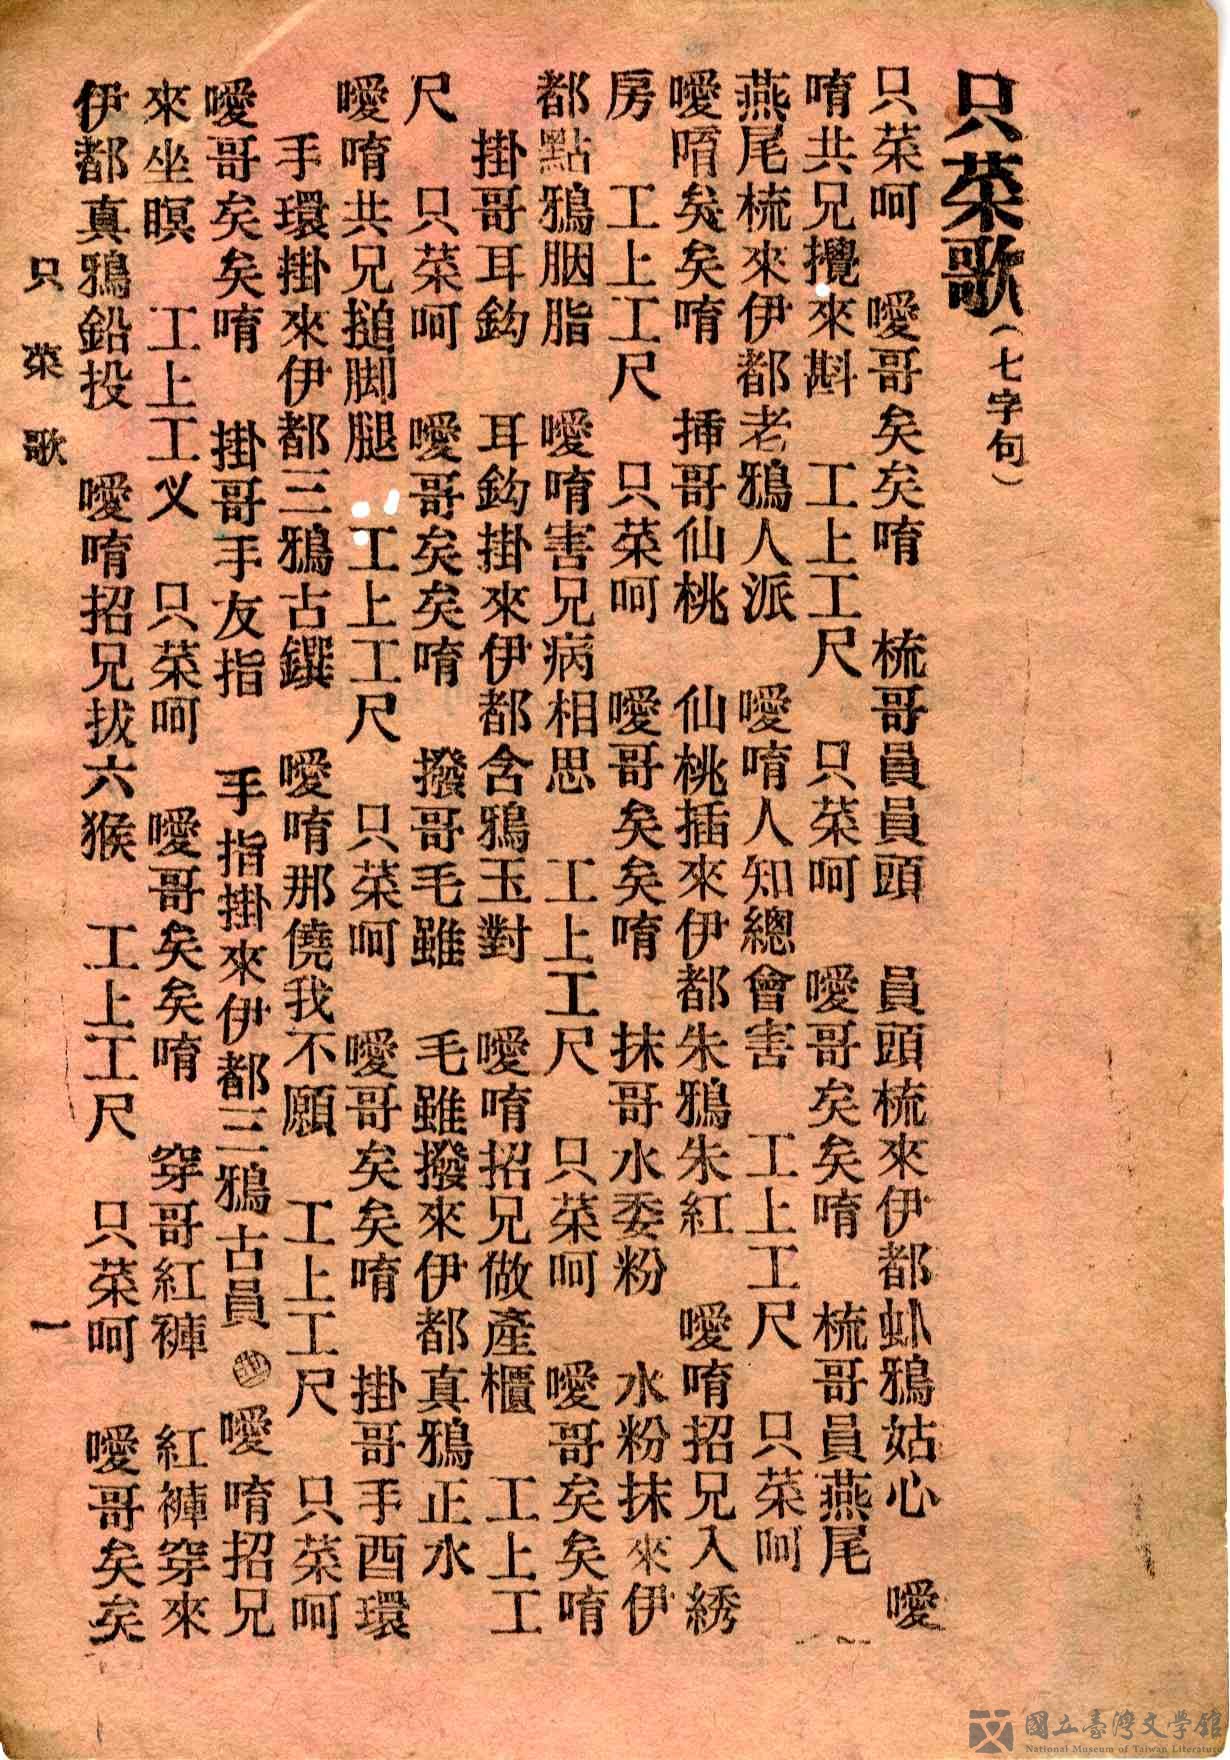 只菜歌(七字句)
只菜呵　噯哥矣矣唷　梳哥員員頭　員頭梳來伊都虯鴉姑心　噯
唷共兄攪來斟　工上工尺　只菜呵　噯哥矣矣唷　梳哥員燕尾
燕尾梳來伊都老鴉人派　噯唷人知總會害　工上工尺　只菜呵
噯唷矣矣唷　揷哥仙桃　仙桃插來伊都朱鴉朱紅　噯唷招兄入綉
房　工上工尺　只菜呵　噯哥矣矣唷　抹哥水委粉　水粉抹來伊
都點鴉胭脂　噯唷害兄病相思　工上工尺　只菜呵　噯哥矣矣唷
掛哥耳鈎　耳鈎掛來伊都含鴉玉對　噯唷招兄做產櫃　工上工
尺　只菜呵　噯哥矣矣唷　撥哥毛雖　毛雖撥來伊都真鴉正水
噯唷共兄搥脚腿　工上工尺　只菜呵　噯哥矣矣唷　掛哥手酉環
手環掛來伊都三鴉古鐉　噯唷那僥我不願　工上工尺　只菜呵
噯哥矣矣唷　掛哥手友指　手指掛來伊都三鴉古員　噯唷招兄
來坐瞑　工上工乂　只菜呵　噯哥矣矣唷　穿哥紅褲　紅褲穿來
伊都真鴉鉛投　噯唷招兄拔六猴　工上工尺　只菜呵　噯哥矣矣
只菜歌　一
國立臺灣文學館
National Museum of Taiwan Literature